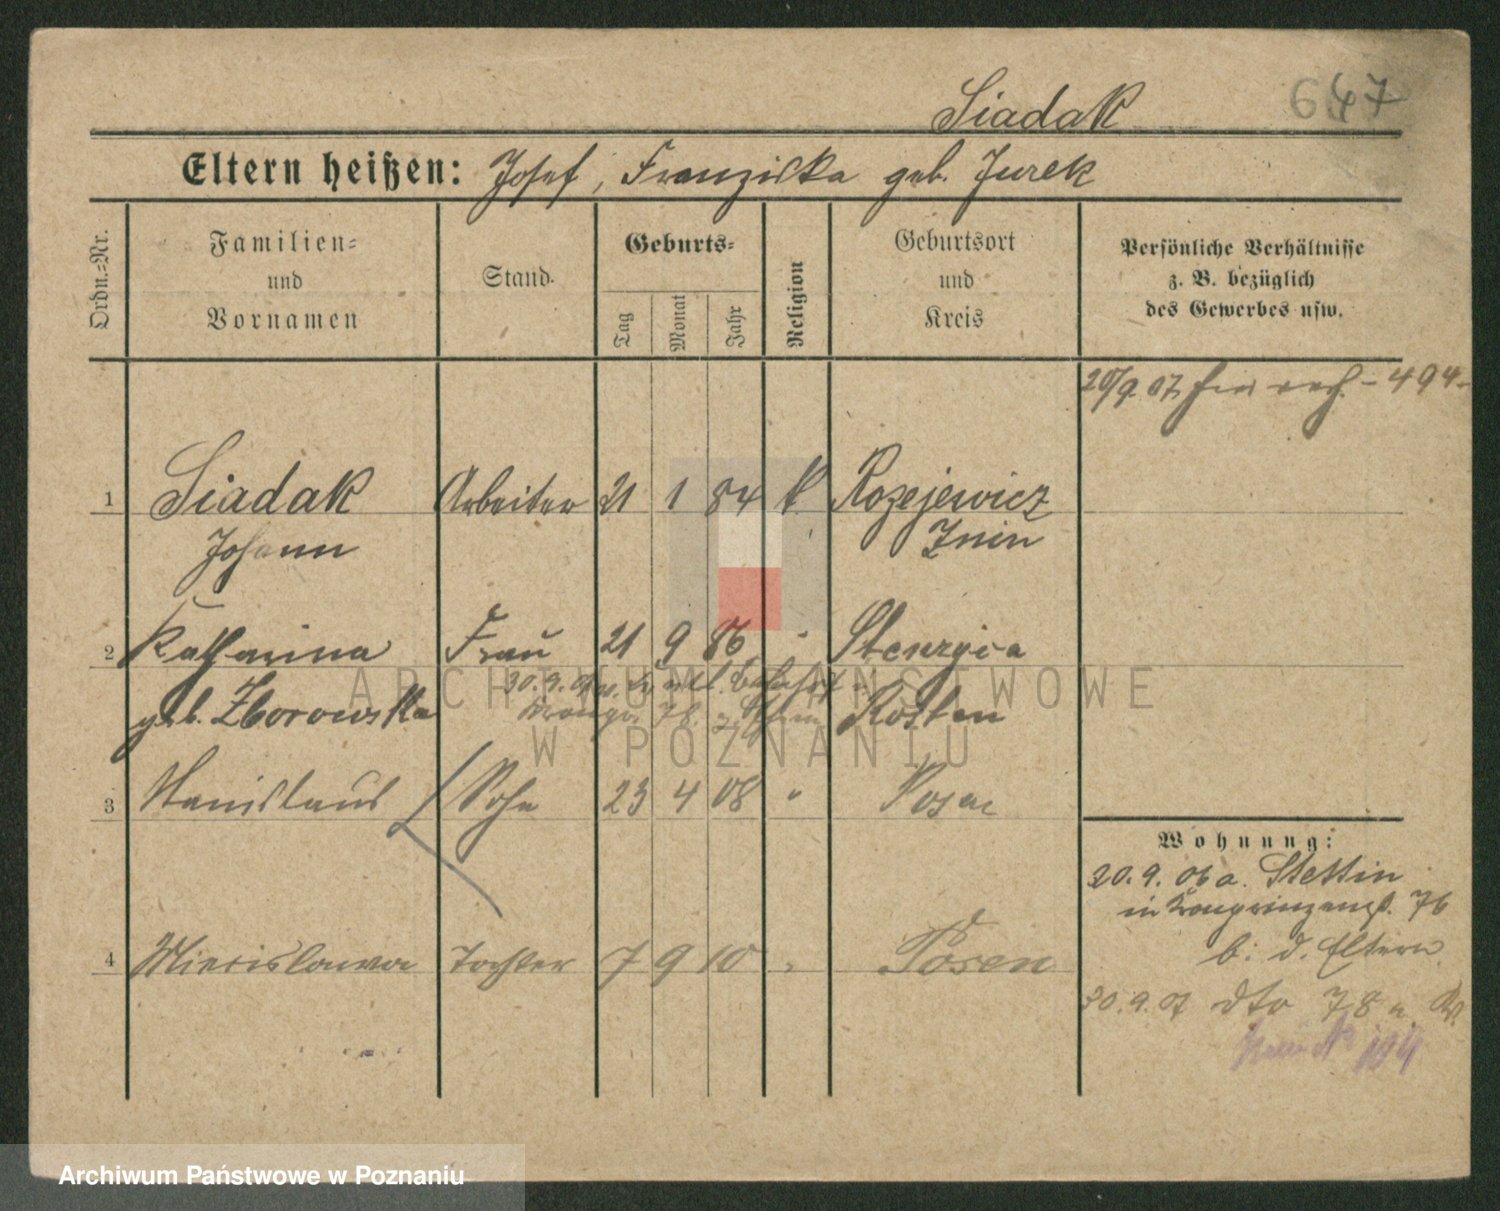 Siadak
647
Eltern heißen: Josef, Franziska geb. Jurek
Ordn.=Nr.
Familien=
und
Vornamen
Stand.
Geburts=
Tag
Monat
Jahr
Religion
Geburtsort
und
Kreis
Persönliche Verhältnisse
z. B. bezüglich
des Gewerbes usw.
20/9. 07 - 494-
1 Siadak Arbeiter 21 1 84 k. Rozejewicz
Johann Znin
2 Katharina Frau 21 9 86 "
geb. Zborowska Kosten
30. 9. 07
3 Stanislaus Sohn 23 4 08 " Posen
Wohnung:
20. 9. 06 a. Stettin
in Kronprinzenst. 76
b. d. Eltern
4 Mierislawa Tochter 7 9 10 " Posen
30. 9. 07 dto 78
ARCHIWUM PAŃSTWOWE
W POZNANIU
Archiwum Państwowe w Poznaniu